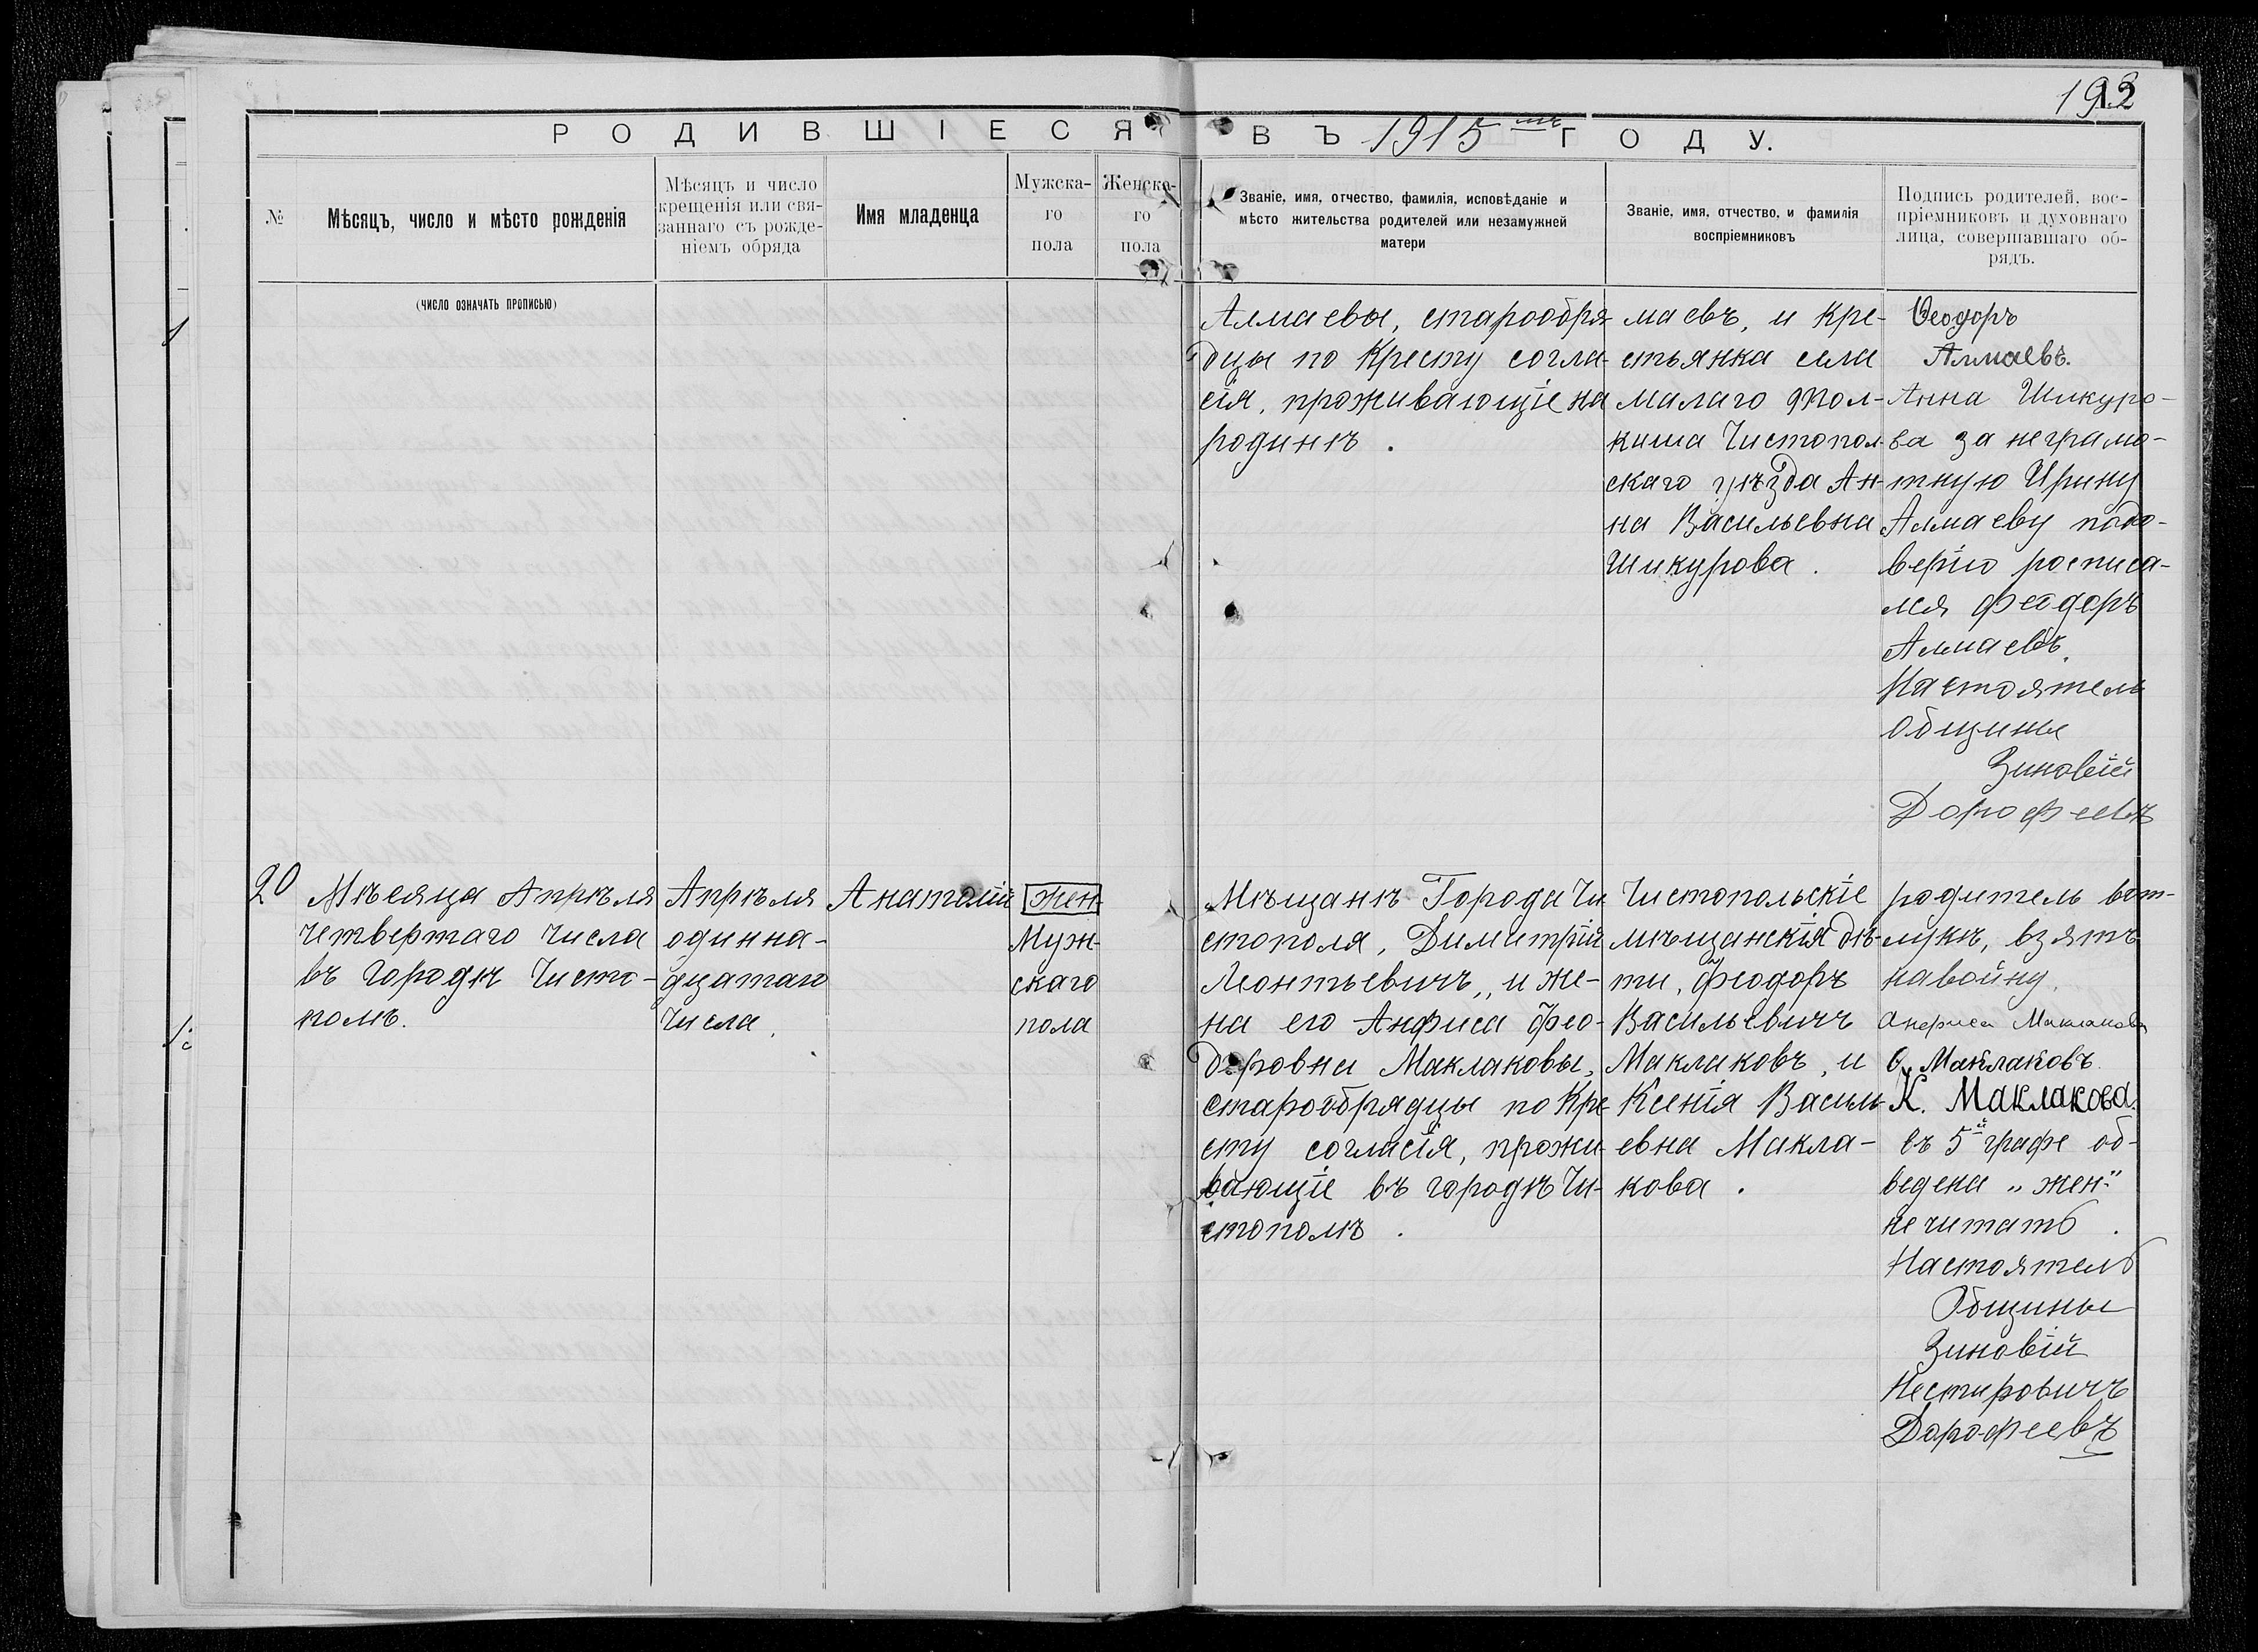 РОДИВШІЕСЯ ВЪ 1915мъ ГОДУ.
№
Мѣсяцъ, число и мѣсто рожденія
Мѣсяцъ и число
крещенія или свя-
заннаго съ рожде-
ніемъ обряда
Имя младенца
Мужска-
го
пола
Женска-
го
пола
Званіе, имя, отчество, фамилія, исповѣданіе и
мѣсто жительства родителей или незамужней
матери
Званіе, имя, отчество, и фамилія
воспріемниковъ
Подпись родителей, вос-
пріемниковъ и духовнаго
лица, совершавшаго об-
рядъ.
(ЧИСЛО ОЗНАЧАТЬ ПРОПИСЬЮ)
Алмаевы, старообря-
дцы по Кресту согла-
сія, проживающіе на
родинѣ.
маевъ, и кре-
стьянка села
малаго Тол-
киша Чистопол-
скаго уѣзда Ан-
на Васильевна
Шикурова.
Ѳеодоръ
Алмаевъ.
Анна Шикуро-
ва за неграмо-
тную Ирину
Алмаеву подо-
верію росписа-
лся Феодоръ
Алмаевъ.
Настоятель
Общины
Зиновій
Дорофеевъ
20
Мѣсяца Апрѣля
четвертаго числа
въ городѣ Чисто-
полъ.
Апрѣля
одинна-
дцатаго
числа.
Анатолій
жен-
Муж-
скаго
пола
Мѣщанѣ Города Чи-
стополя, Димитрій
Леонтьевичъ, и же-
на его Анфиса Фео-
доровна Маклаковы,
старообрядцы по Кре-
сту согласія, прожи-
вающіе въ городѣ Чи-
стополъ.
Чистопольскіе
мѣщанскія дѣ-
ти, Феодоръ
Васильевичъ
Маклаковъ, и
Ксенія Василь-
евна Макла-
кова.
родитель вот-
лукѣ, взятъ
на войну.
Анфиса Маклакова
Ѳ. Маклаковъ.
К. Маклакова.
въ 5й графе об-
ведена „жен."
не читать.
Настоятель
Общины
Зиновій
Нестировичъ
Дорофеевъ